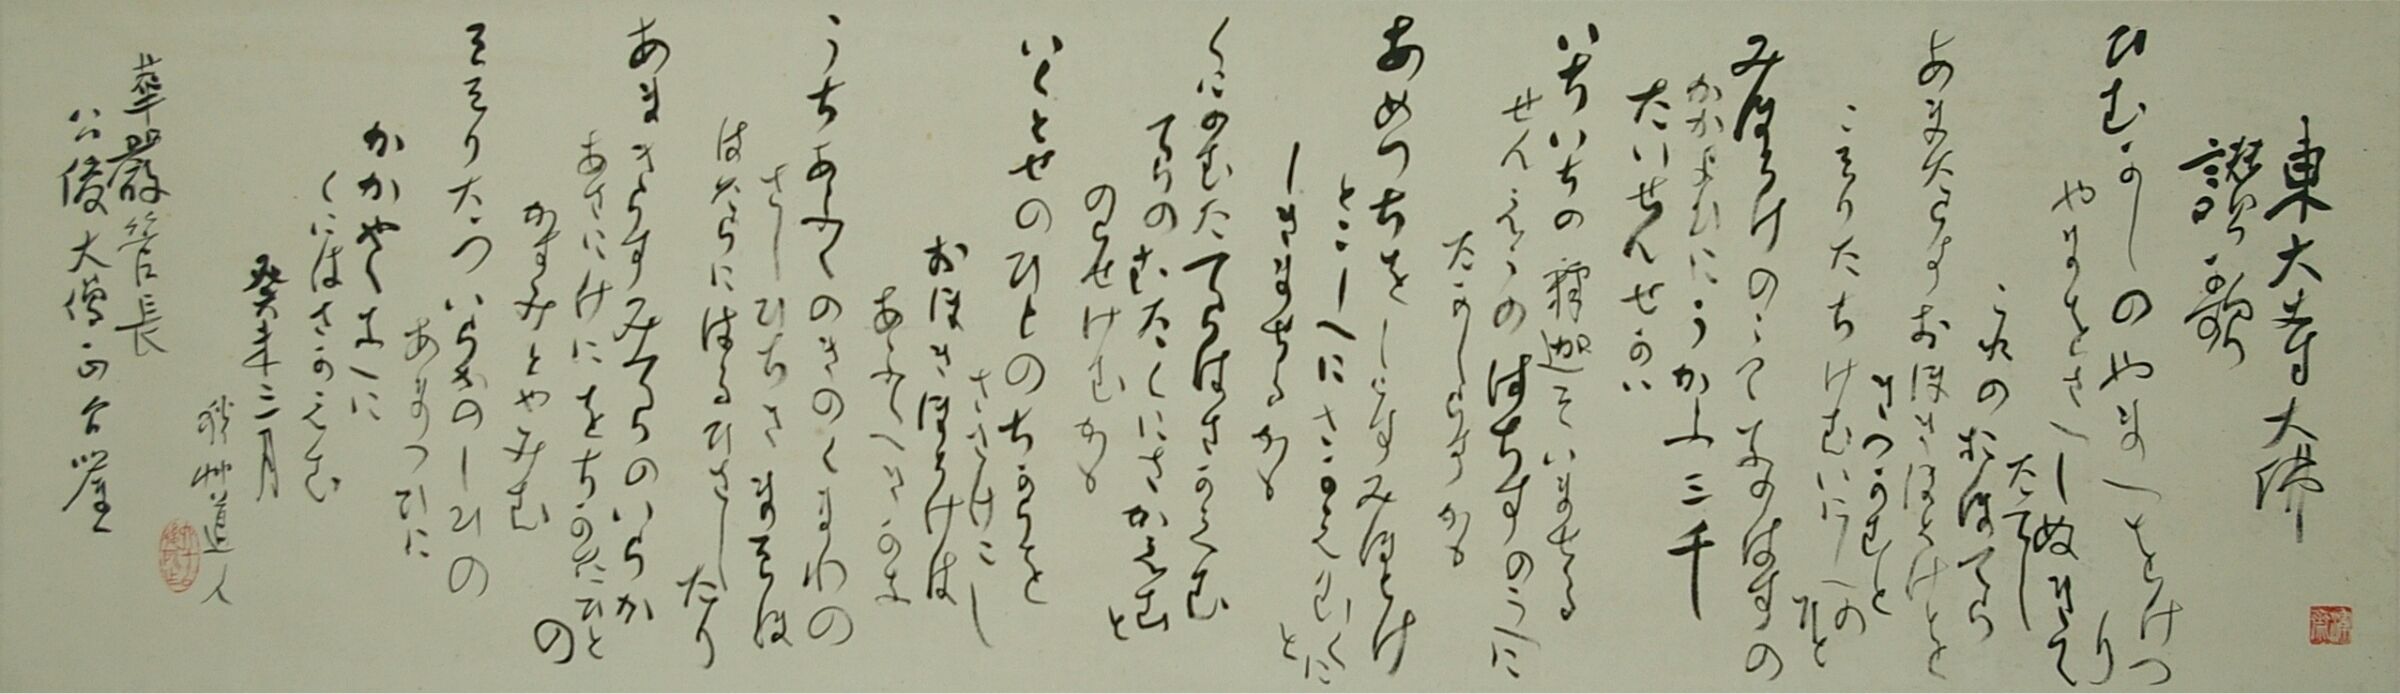 東大寺大佛
讃歌
ひむかしのやまへをけつり
やまをさへしぬきてたてし
これのおほてら
あまたらすおほきほとけを
きつかむと
こそりたちけむいにしへのひと
みほとけのうてなのはすの
かかよひにうかふ三千
たいせんせかい
いちいちの釋迦そいませる
せんえふのはちすのうへに
たかしらすかも
あめつちをしらすみほとけ
とこしへにさかえむくにと
しきませるかも
くにのむたてらはさかえむ
てらのむたくにさかえむと
のらせけむかも
いくとせのひとのちからを
ささけこし
おほきほとけは
あふくへきかな
うちあふくのきのくまわの
さしひちきまそほ
はたらにはるひさしたり
あまきらすみてらのいらか
あさにけにをちかたひとの
かすみとやみむ
そそりたついらかのしひの
あまつひに
かかやくなへに
くにはさかえむ
癸未三月
秋艸道人
華嚴管長
公俊大僧正台座